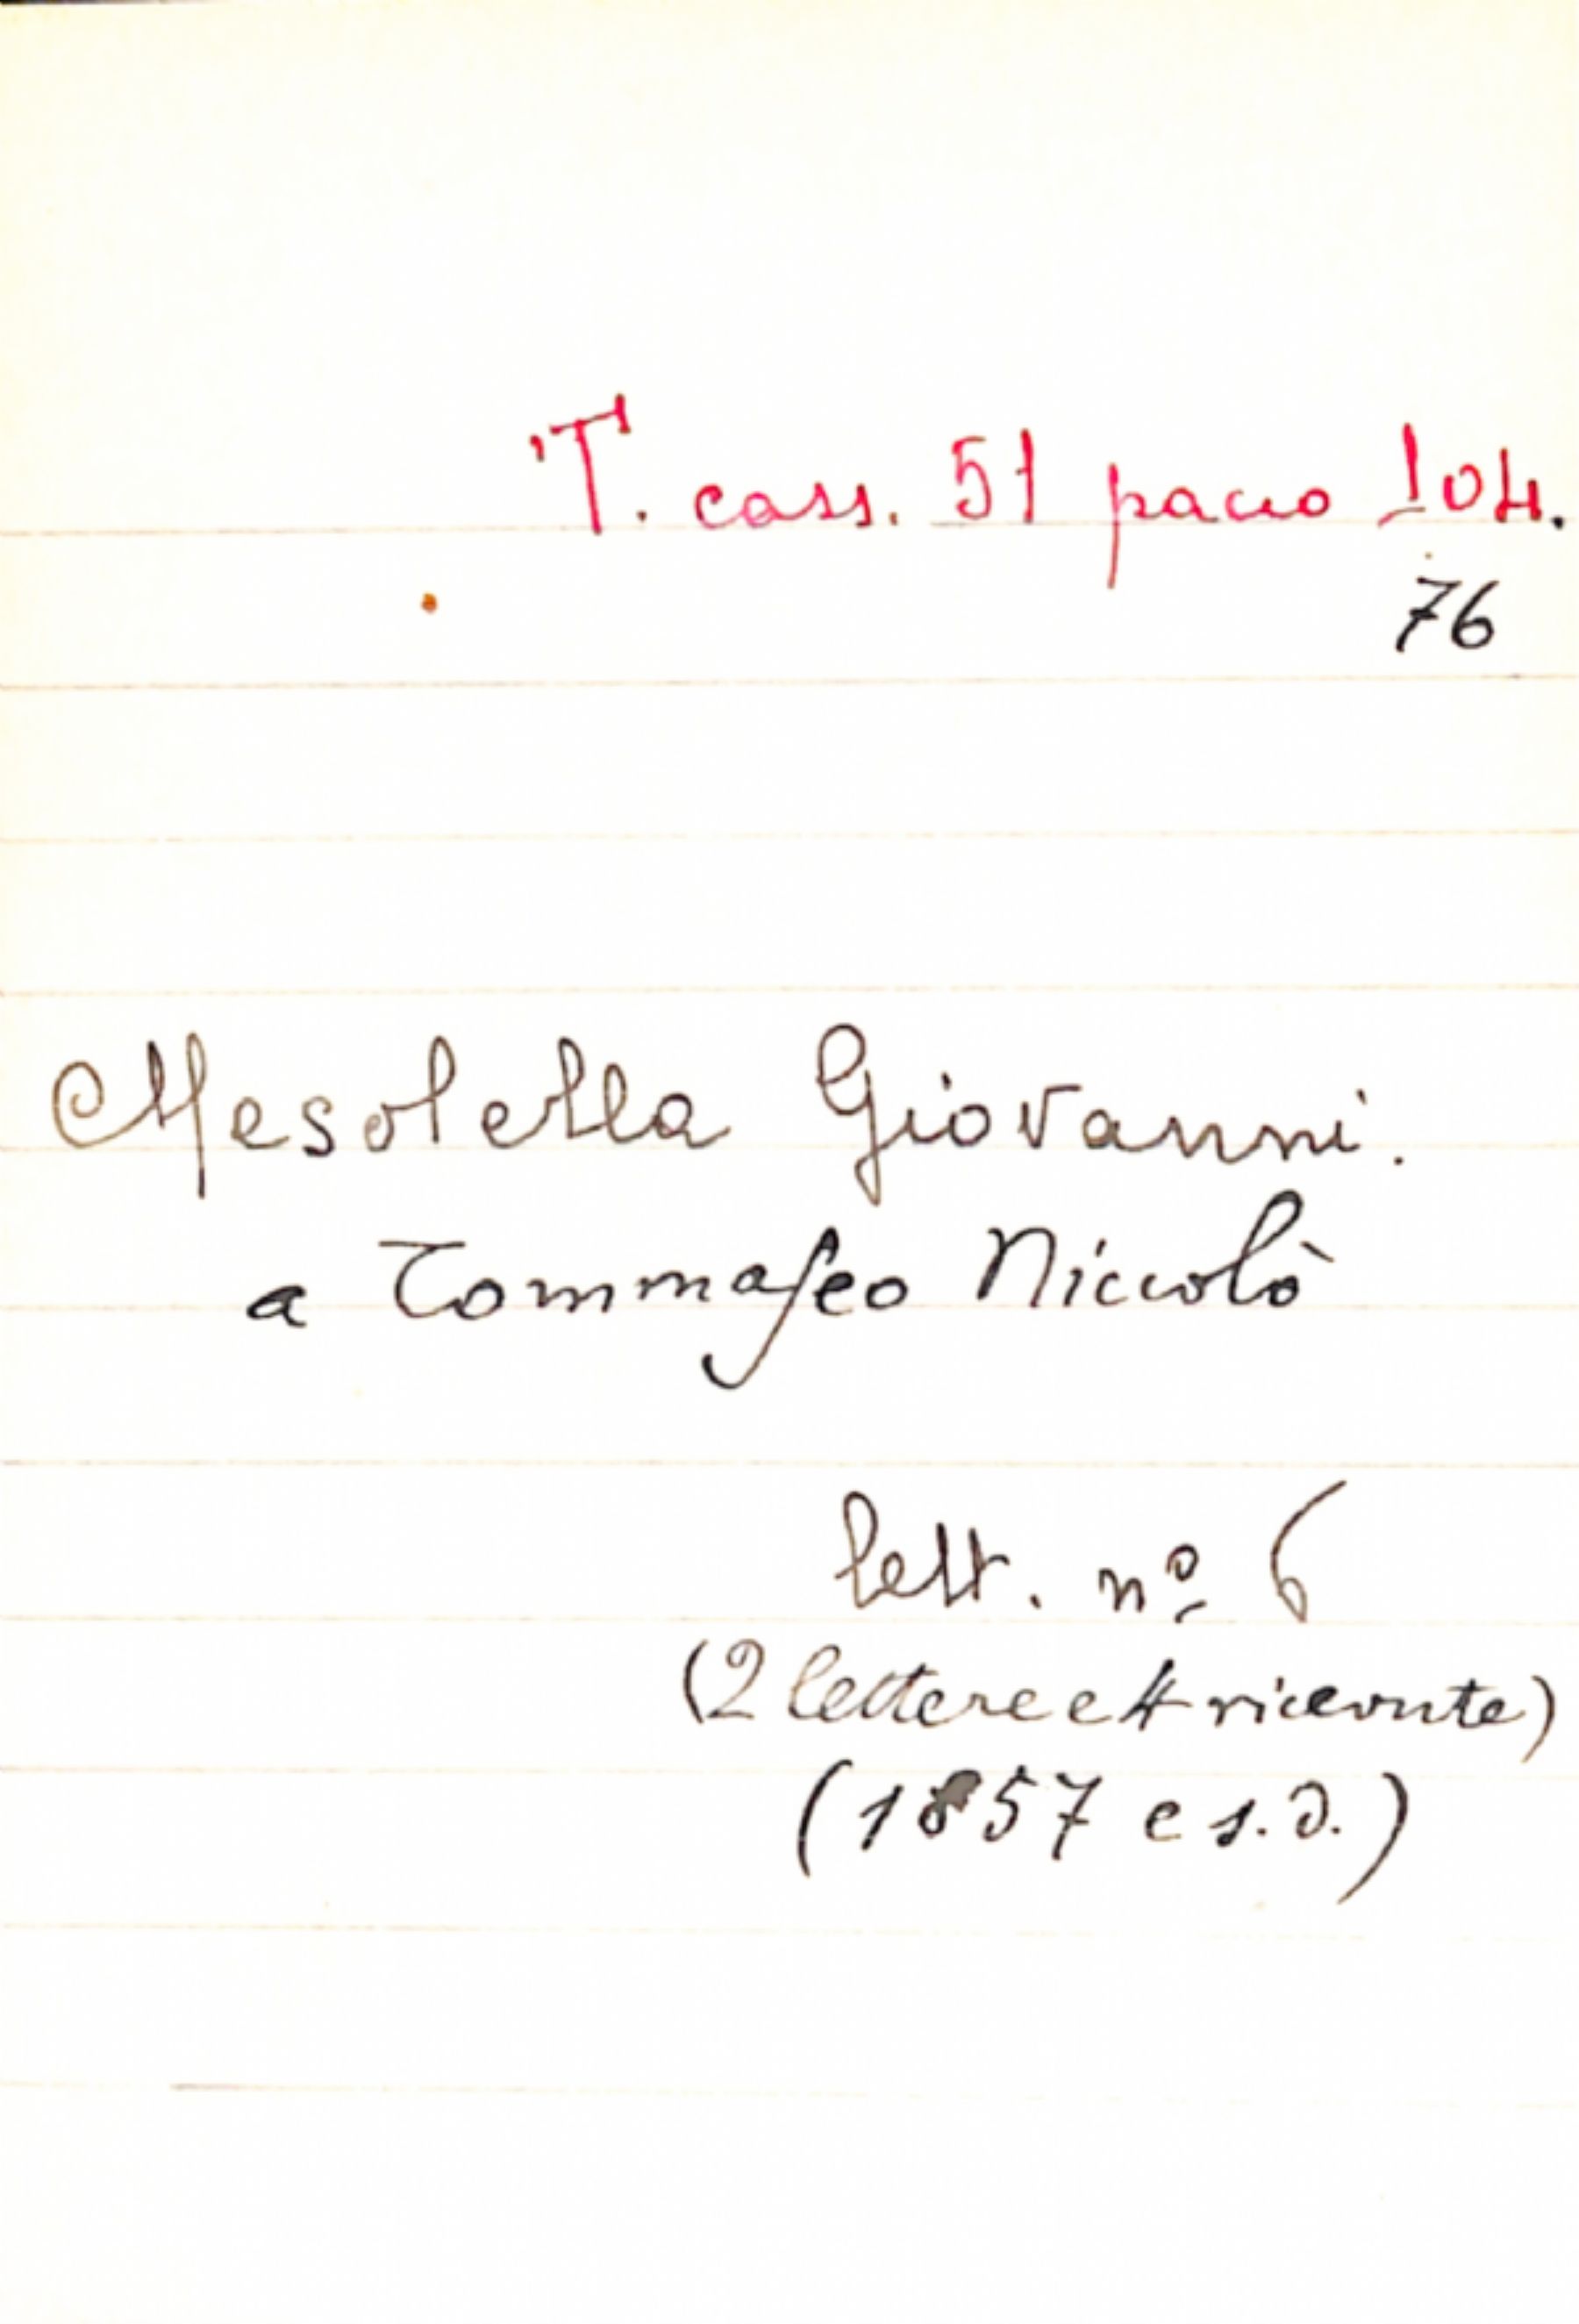 T. cass. 51 pacco 104.
76
Mesolella Giovanni.
a Tommaseo Niccolò
lett. nº 6
(2 lettere e 4 ricevute)
(1857 e s.d.)